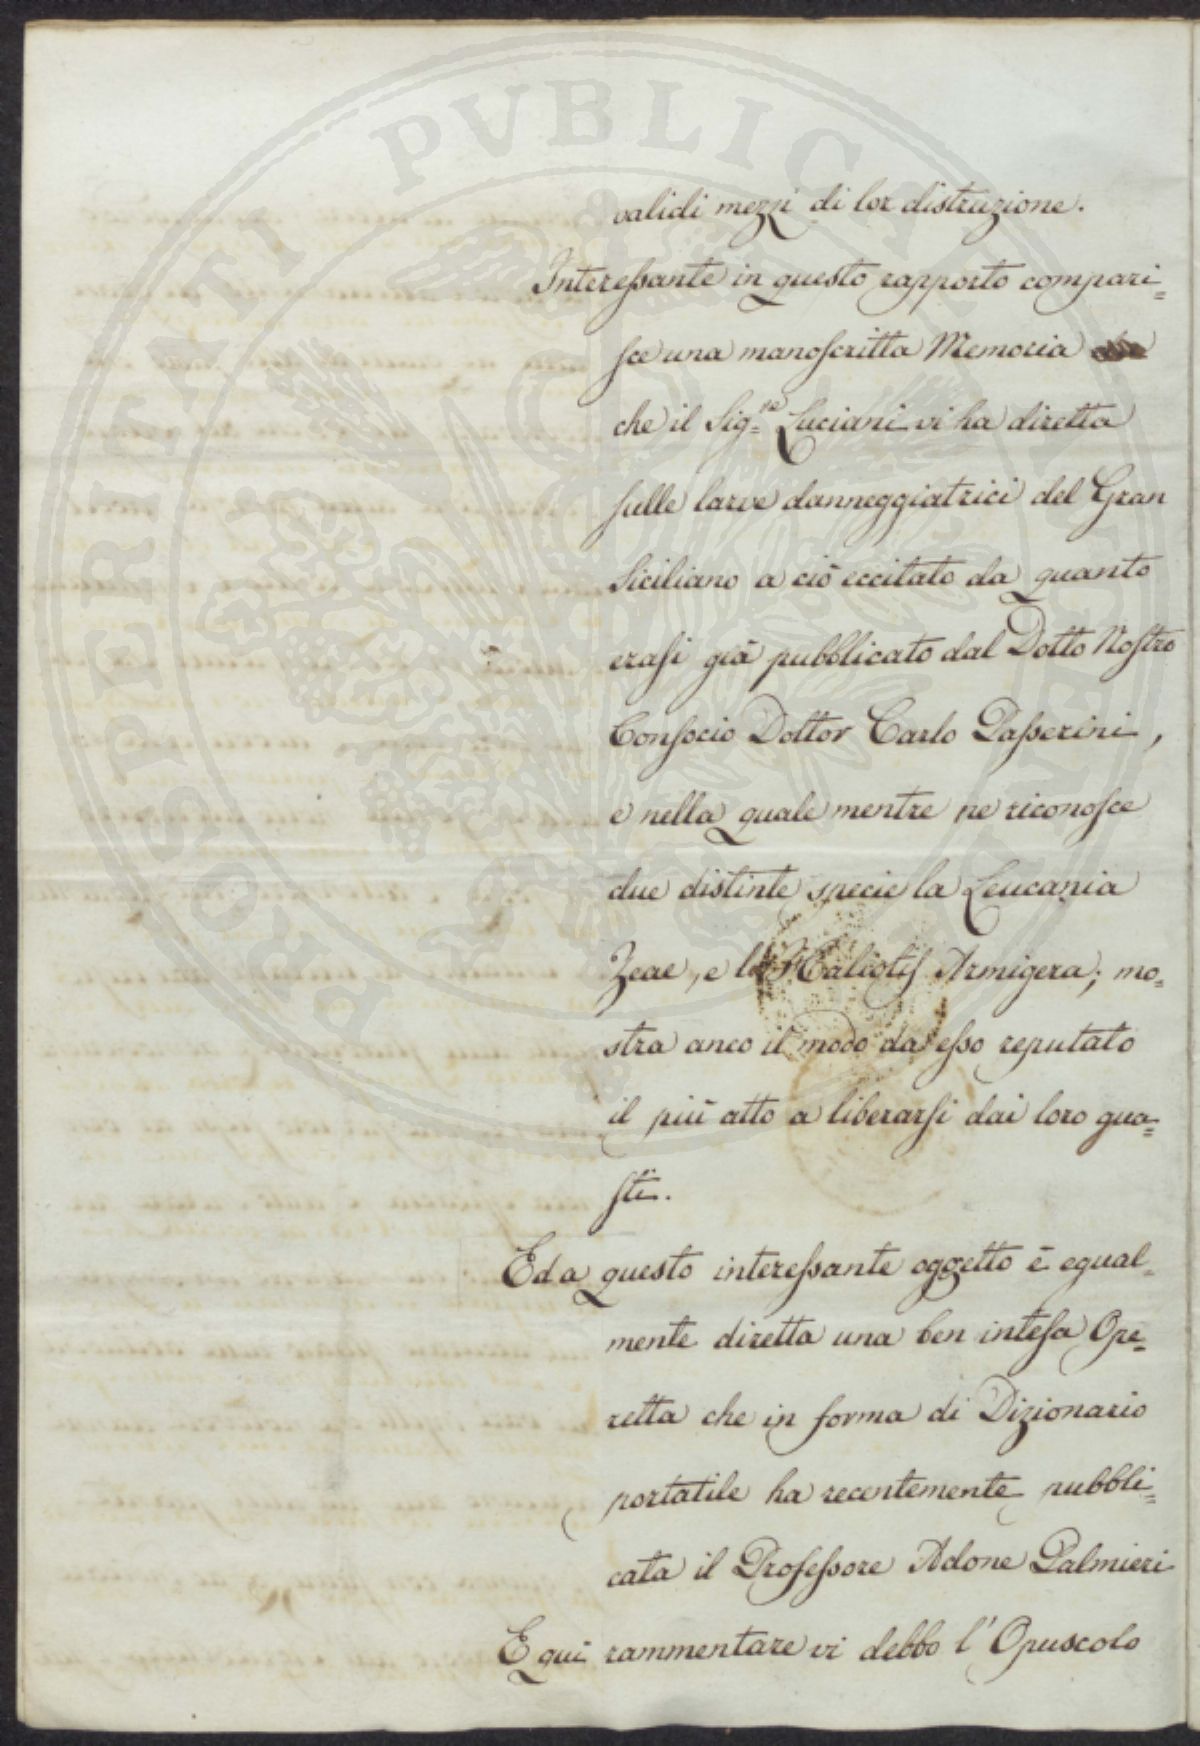 validi mezzi di lor distruzione.
Interessante in questo rapporto compari=
sce una manoscritta Memoria
che il Sig.re Luciani vi ha diretta
sulle larve danneggiatrici del Gran
Siciliano a ciò eccitato da quanto
erasi già pubblicato dal Dotto Nostro
Consocio Dottor Carlo Passerini,
e nella quale mentre ne riconosce
due distinte specie la Leucania
Zeae, e la Haliotis Armigera; mo=
stra anco il modo da esso reputato
il più atto a liberarsi dai loro gua=
sti.
Ed a questo interessante oggetto è egual=
mente diretta una ben intesa Ope=
retta che in forma di Dizionario
portatile ha recentemente pubbli=
cata il Professore Adone Palmieri
E qui rammentare vi debbo l'Opuscolo
PROSPERITATI PVBLICAE AVGENDAE